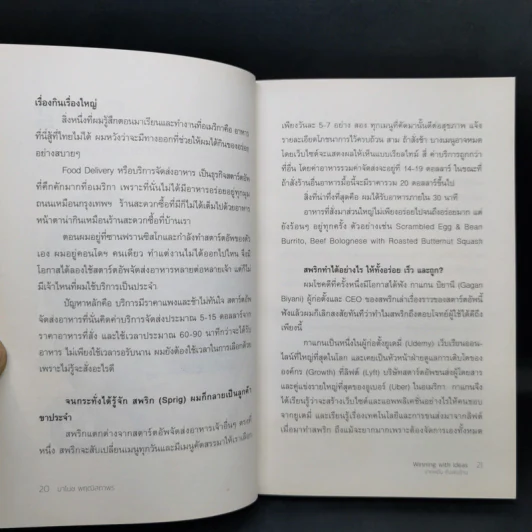 เรื่องกินเรื่องใหญ่
สิ่งหนึ่งที่ผมรู้สึกตอนมาเรียนและทำงานที่อเมริกาคือ อาหาร
ที่นี่สู้ที่ไทยไม่ได้ ผมหวังว่าจะมีทางออกที่ช่วยให้ผมได้กินของอร่อย
อย่างสบายๆ
Food Delivery หรือบริการจัดส่งอาหาร เป็นธุรกิจสตาร์ตอัพ
ที่คึกคักมากที่อเมริกา เพราะที่นั่นไม่ได้มีอาหารอร่อยอยู่ทุกมุม
ถนนเหมือนกรุงเทพฯ ร้านสะดวกซื้อก็มีไม่ได้เต็มไปด้วยอาหาร
หน้าตาน่ากินเหมือนร้านสะดวกซื้อที่บ้านเรา
ตอนผมอยู่ที่ซานฟรานซิสโกและกำลังทำสตาร์ตอัพของตัว
เอง ผมอยู่คอนโดฯ คนเดียว ทำแต่งานไม่ได้ออกไปไหน จึงมี
โอกาสได้ลองใช้สตาร์ตอัพจัดส่งอาหารหลายต่อหลายเจ้า แต่ก็ไม่
มีเจ้าไหนที่ผมใช้บริการเป็นประจำ
ปัญหาหลักคือ บริการมีราคาแพงและช้าไม่ทันใจ สตาร์ตอัพ
จัดส่งอาหารที่นั่นคิดค่าบริการจัดส่งประมาณ 5-15 ดอลลาร์จาก
ราคาอาหารที่สั่ง และใช้เวลาประมาณ 60-90 นาทีกว่าจะได้รับ
อาหาร ไม่เพียงใช้เวลารอรับนาน ผมยังต้องใช้เวลาในการเลือกด้วย
เพราะไม่รู้จะสั่งอะไรดี
จนกระทั่งได้รู้จัก สพริก (Sprig) ผมก็กลายเป็นลูกค้า
ขาประจำ
สพริกแตกต่างจากสตาร์ตอัพจัดส่งอาหารเจ้าอื่นๆ ตรงที่
หนึ่ง สพริกจะสับเปลี่ยนเมนูทุกวันและมีเมนูคัดสรรมาให้เราเลือก
20
เพียงวันละ 5-7 อย่าง สอง ทุกเมนูที่คัดมานั้นดีต่อสุขภาพ แจ้ง
รายละเอียดโภชนาการไว้ครบถ้วน สาม ถ้าสั่งช้า บางเมนูอาจหมด
โดยเว็บไซต์จะแสดงผลให้เห็นแบบเรียลไทม์ สี่ ค่าบริการถูกกว่า
ที่อื่น โดยค่าอาหารรวมค่าจัดส่งจะอยู่ที่ 14-19 ดอลลาร์ ในขณะที่
ถ้าสั่งร้านอื่นอาหารมื้อนี้จะมีราคารวม 20 ดอลลาร์ขึ้นไป
สิ่งที่น่าทึ่งที่สุดคือ ผมได้รับอาหารภายใน 30 นาที
อาหารที่สั่งมาส่วนใหญ่ไม่เพียงอร่อยไปจนถึงอร่อยมาก แต่
ยังร้อนๆ อยู่ทุกครั้ง ตัวอย่างเช่น Scrambled Egg & Bean
Burrito, Beef Bolognese with Roasted Butternut Squash
สพริกทำได้อย่างไร ให้ทั้งอร่อย เร็ว และถูก?
ผมโชคดีที่ครั้งหนึ่งมีโอกาสได้ฟัง กาแกน บิยานี (Gagan
Biyani) ผู้ก่อตั้งและ CEO ของสพริกเล่าเรื่องราวของสตาร์ตอัพนี้
ฟังแล้วผมก็เลิกสงสัยทันทีว่าทำไมสพริกถึงตอบโจทย์ผู้ใช้ได้ดีถึง
เพียงนี้
กาแกนเป็นหนึ่งในผู้ก่อตั้งยูเดมี่ (Udemy) เว็บเรียนออน-
ไลน์ที่ใหญ่ที่สุดในโลก และเคยเป็นหัวหน้าฝ่ายดูแลการเติบโตของ
องค์กร (Growth) ที่ลิฟต์ (Lyft) บริษัทสตาร์ตอัพขนส่งผู้โดยสาร
และคู่แข่งรายใหญ่ที่สุดของอูเบอร์ (Uber) ในอเมริกา กาแกนจึง
ได้เรียนรู้ว่าจะสร้างเว็บไซต์และแอพพลิเคชันอย่างไรให้คนชอบ
จากยูเดมี่ และเรียนรู้เรื่องเทคโนโลยีและการขนส่งมาจากลิฟต์
เมื่อมาทำสพริก ถึงแม้จะยากมากเพราะต้องจัดการเองทั้งหมด
Winning with Ideas
21